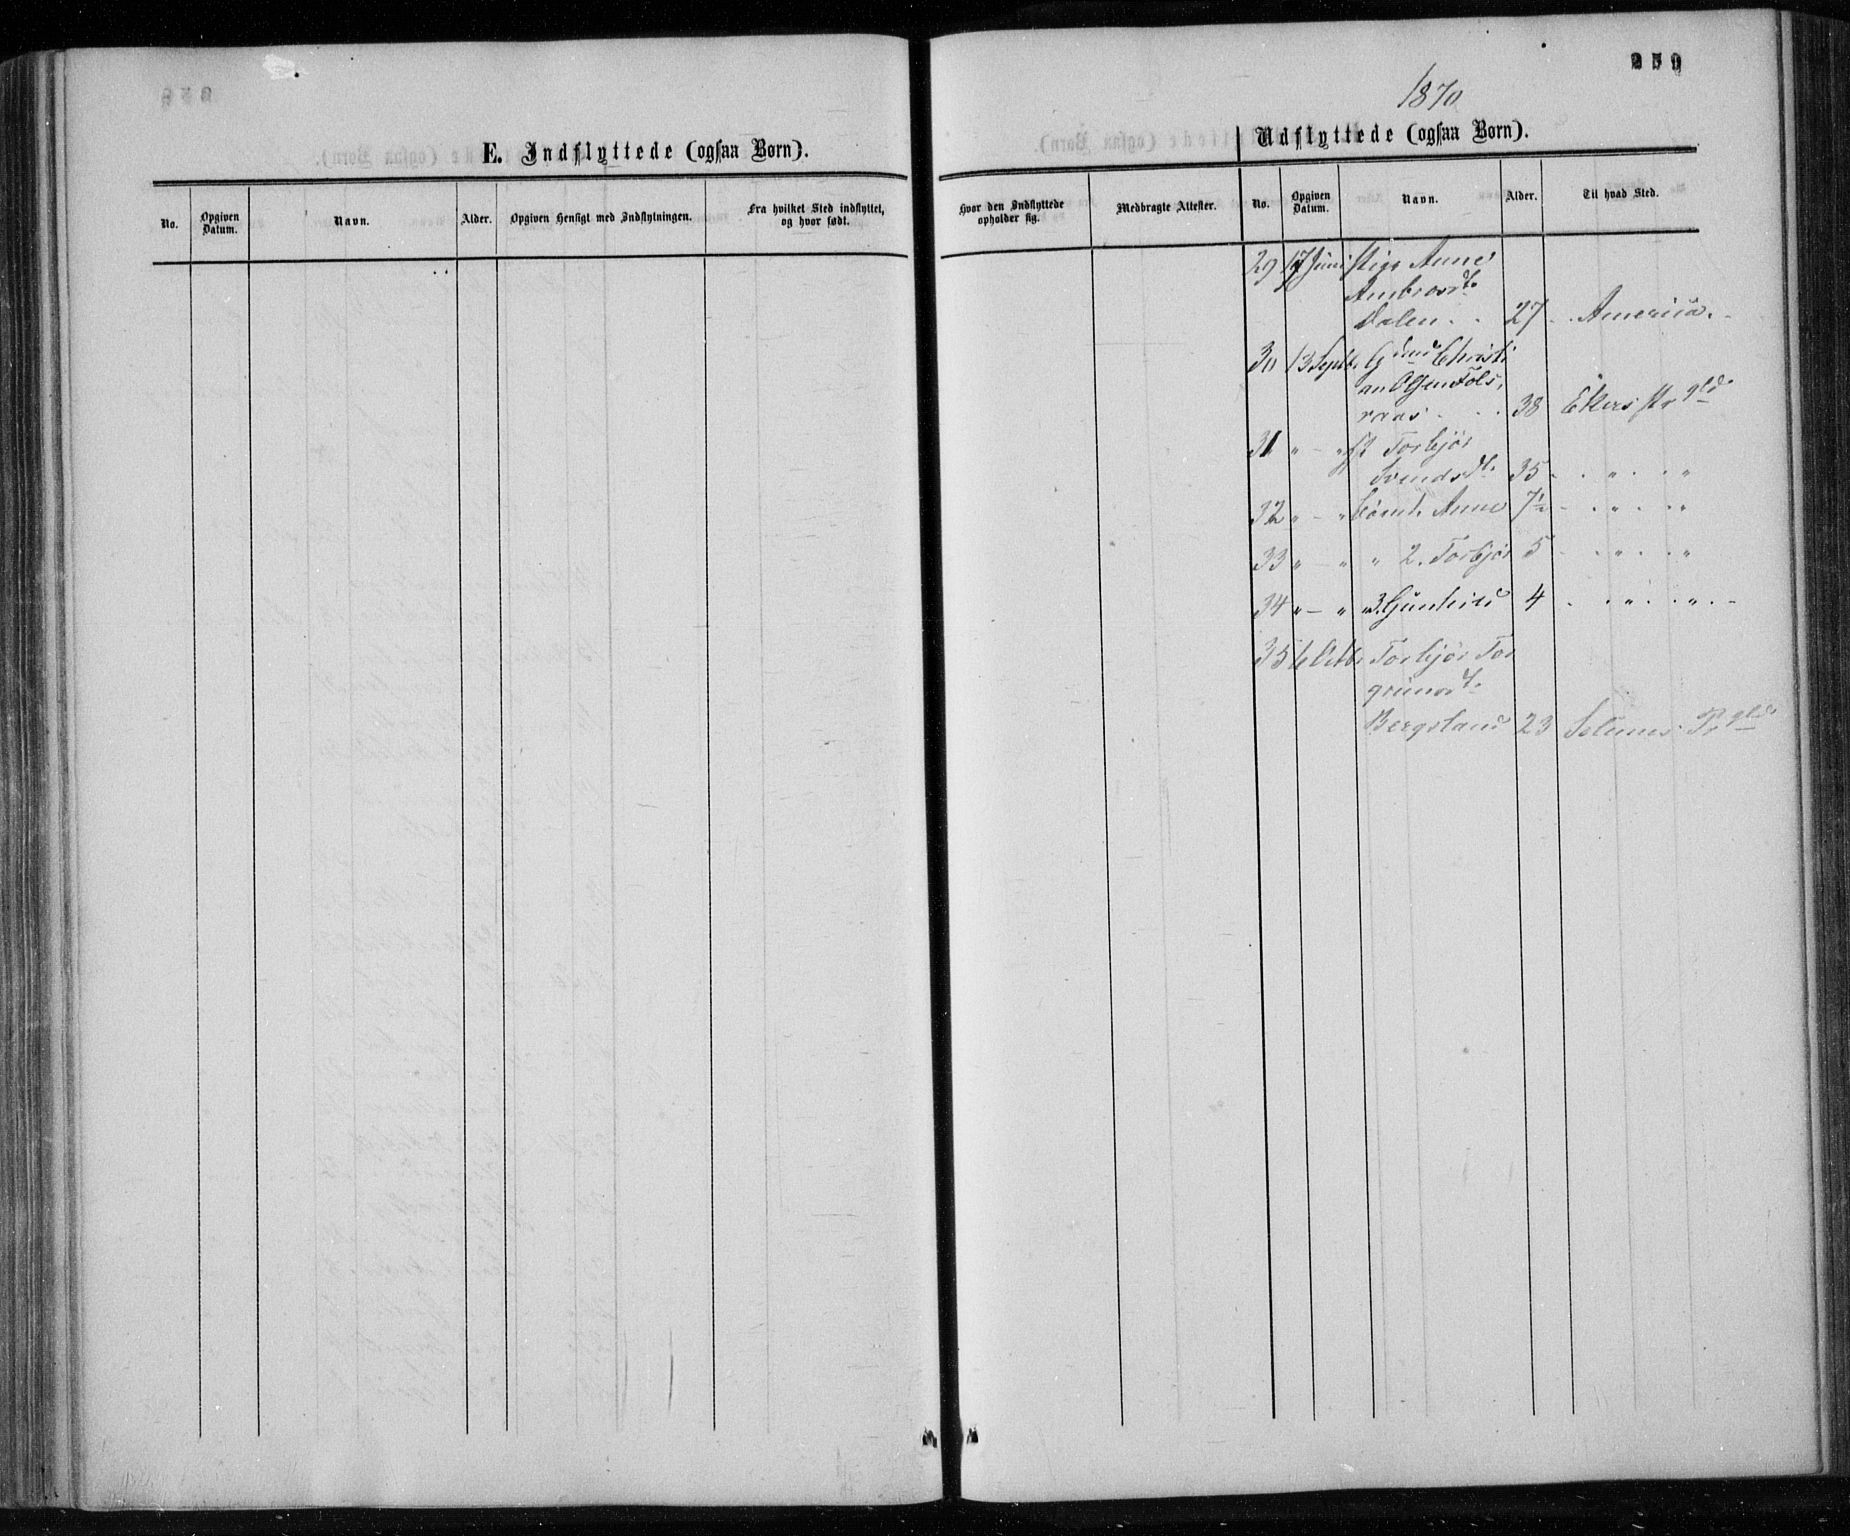 E. Indflyttede (ogsaa Børn).
No.
Opgiven Datum.
Navn.
Alder.
Opgiven Hensigt med Indflytningen.
Fra hvilket Sted indflyttet, og hvor født.
259
1870
Udflyttede (ogsaa Børn).
Hvor den Indflyttede opholder sig.
Medbragte Attester.
No.
Opgiven Datum.
Navn.
Alder.
Til hvad Sted.
29 17 Juni Pige Anne
Ambrosdt.
Dalen 27 America.
30 13 Septb. Gmd Christi
an Olsen
raas 38 Ekers Prgld
31 " - " Torbjør
Svendsdt. 35 " "
32 " - " børn 1. Anne 7½ " "
33 " - " " 2. Torbjør 5 " "
34 " - " " 3. Gunhild 4 " "
35 6 Octbr Torbjør Tor
grimsdt.
Bergsland 23 Prgld